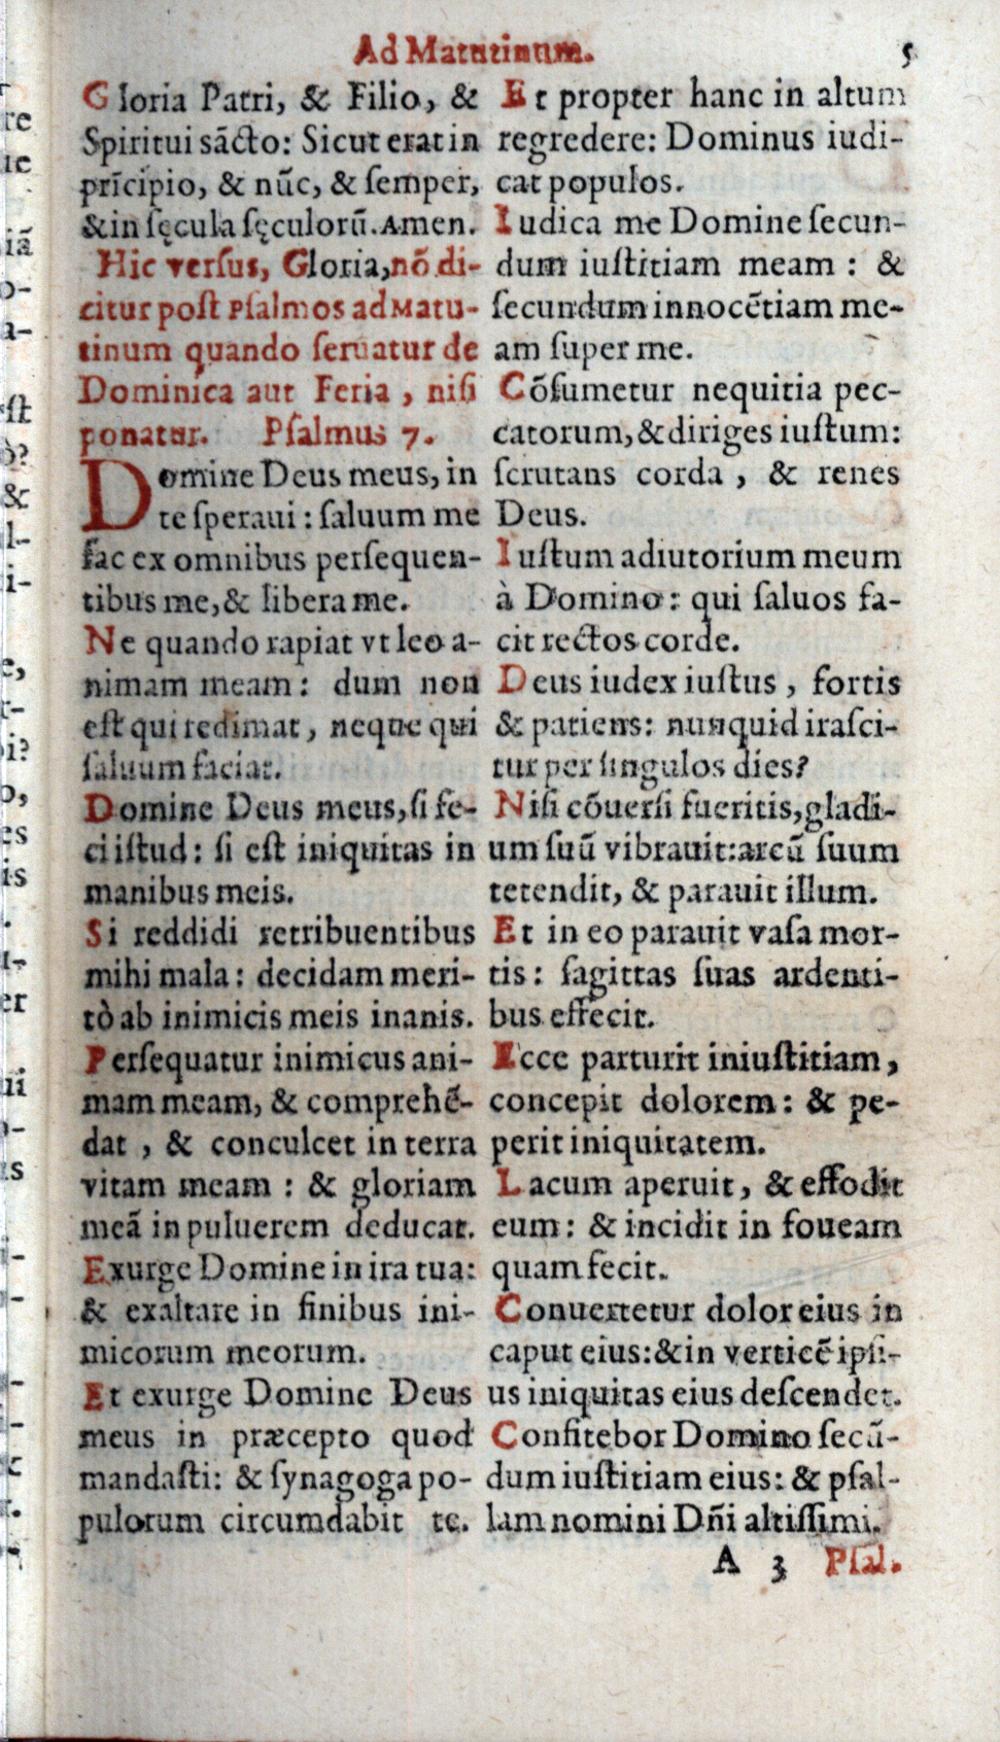 Ad Matutinum. 5
Gloria Patri, & Filio, &
Spiritui sãcto: Sicut erat in
prĩcipio, & nũc, & ſemper,
& in ſęcula ſęculorũ. Amen.
Hic verſus, Gloria, nõ di-
citur poſt Pſalmos ad Matu-
tinum quando ſeruatur de
Dominica aut Feria, niſi
ponatur. Pſalmus 7.
Domine Deus meus, in
te ſperaui: ſaluum me
fac ex omnibus perſequen-
tibus me, & libera me.
Ne quando rapiat vt leo a-
nimam meam: dum non
eſt qui redimat, neque qui
ſaluum faciat.
Domine Deus meus, ſi fe-
ci iſtud: ſi eſt iniquitas in
manibus meis.
Si reddidi retribuentibus
mihi mala: decidam meri-
tò ab inimicis meis inanis.
Perſequatur inimicus ani-
mam meam, & comprehẽ-
dat, & conculcet in terra
vitam meam: & gloriam
meã in puluerem deducat.
Exurge Domine in ira tua:
& exaltare in finibus ini-
micorum meorum.
Et exurge Domine Deus
meus in præcepto quod
mandaſti: & ſynagoga po-
pulorum circumdabit te.
Et propter hanc in altum
regredere: Dominus iudi-
cat populos.
Iudica me Domine ſecun-
dum iuſtitiam meam: &
ſecundum innocẽtiam me-
am ſuper me.
Cõſumetur nequitia pec-
catorum, & diriges iuſtum:
ſcrutans corda, & renes
Deus.
Iuſtum adiutorium meum
à Domino: qui ſaluos fa-
cit rectos corde.
Deus iudex iuſtus, fortis
& patiens: nunquid iraſci-
tur per ſingulos dies?
Niſi cõuerſi fueritis, gladi-
um ſuũ vibrauit: arcũ ſuum
tetendit, & parauit illum.
Et in eo parauit vaſa mor-
tis: ſagittas ſuas ardenti-
bus effecit.
Ecce parturit iniuſtitiam,
concepit dolorem: & pe-
perit iniquitatem.
Lacum aperuit, & effodit
eum: & incidit in foueam
quam fecit.
Conuertetur dolor eius in
caput eius: & in verticẽ ipſi-
us iniquitas eius deſcendet.
Confitebor Domino ſecũ-
dum iuſtitiam eius: & pſal-
lam nomini Dñi altiſſimi.
A 3 Pſal.